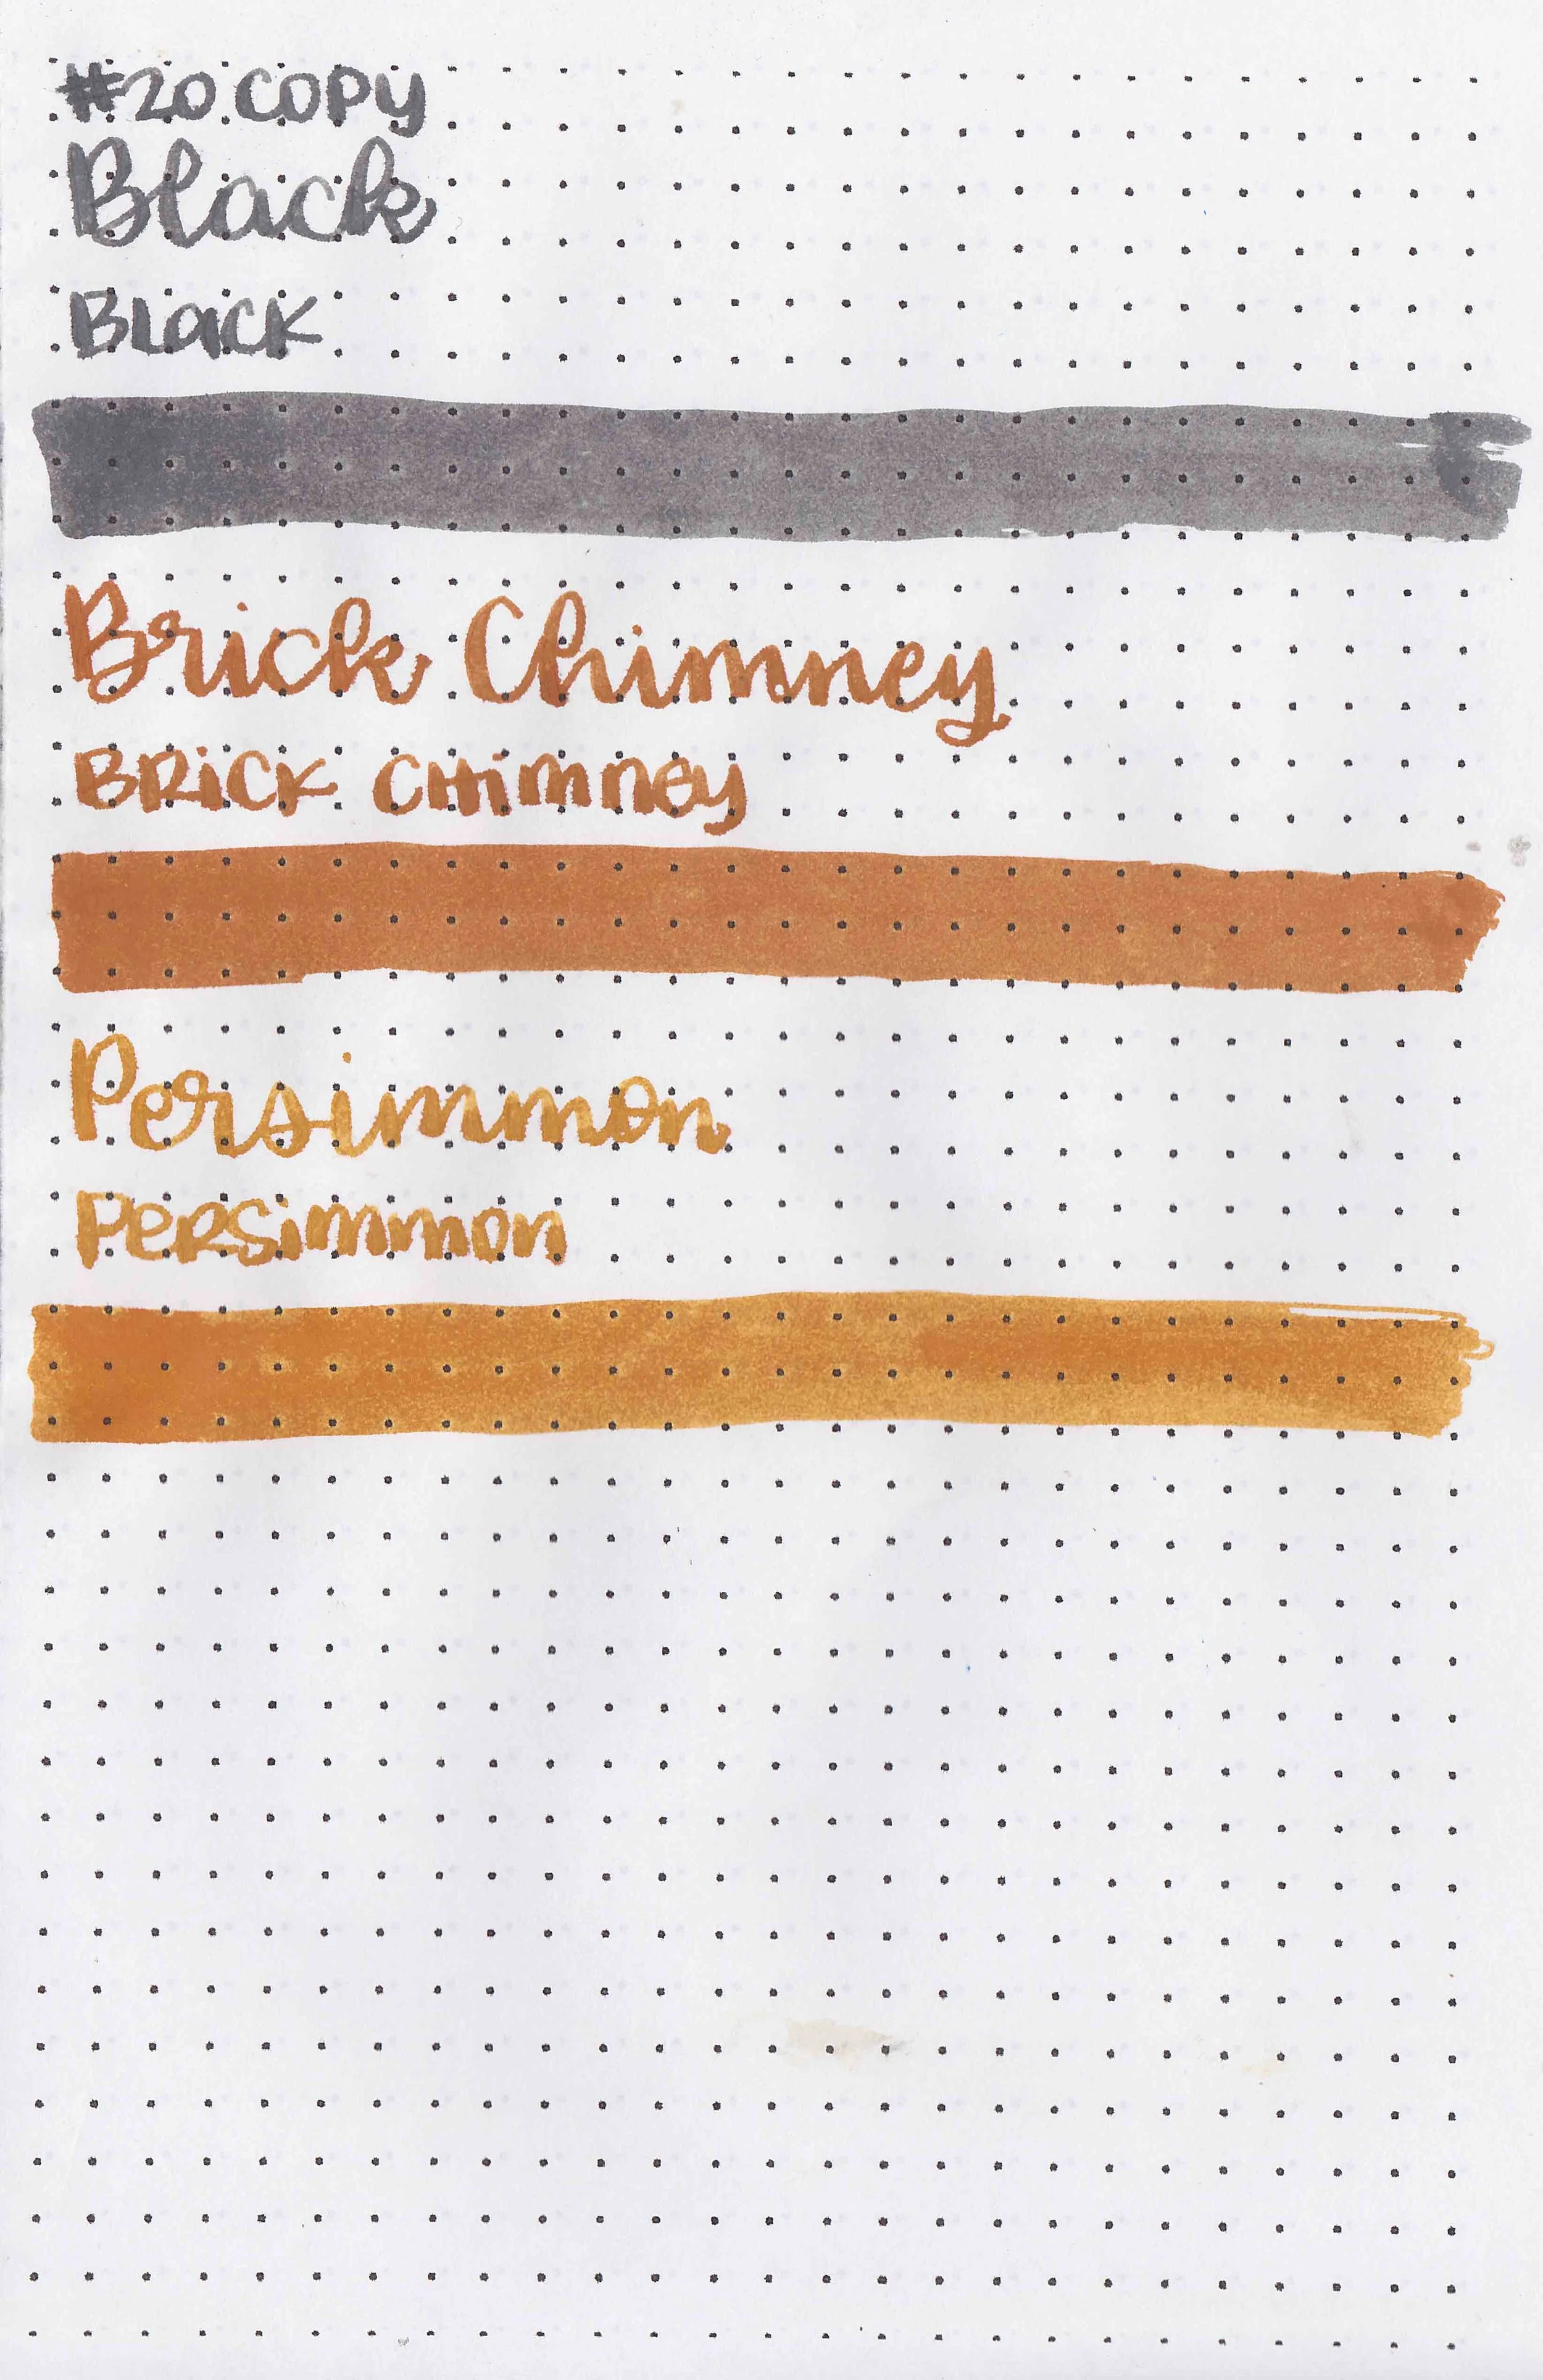 #20 COPY
Black
BLACK
Brick Chimney
BRICK CHIMNEY
Persimmon
PERSIMMON